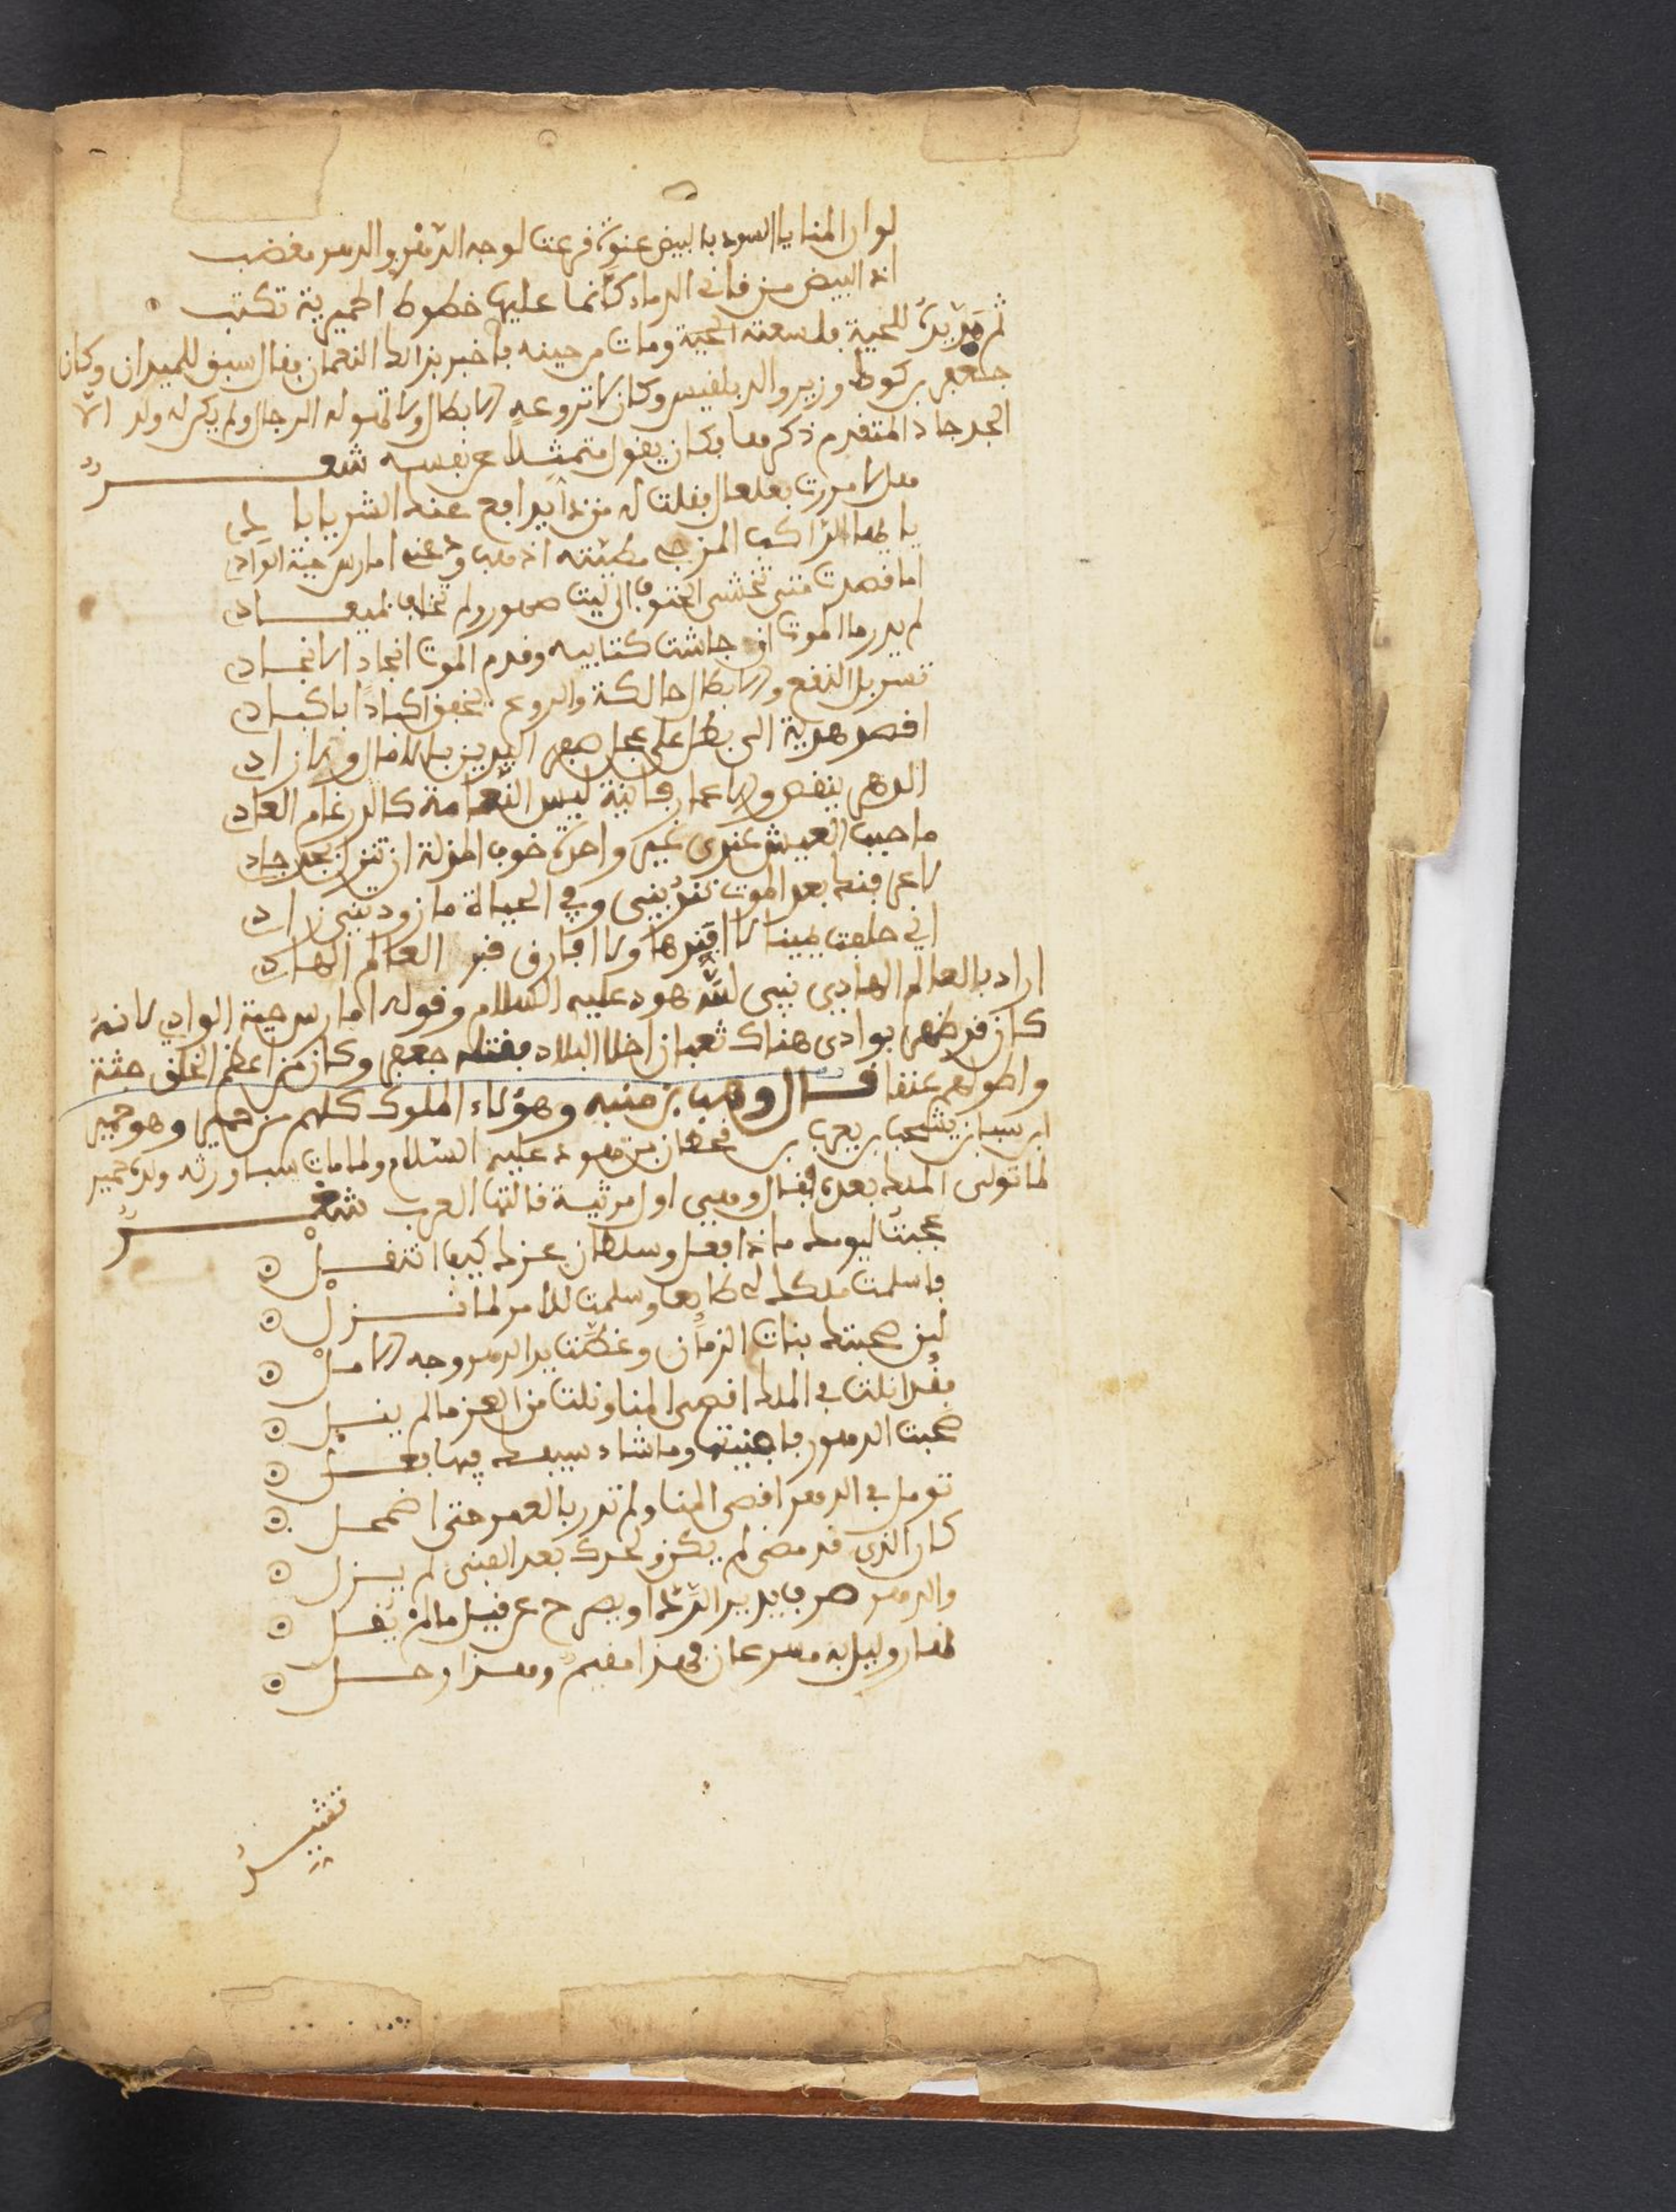 لوان المنايا السود بالبيض عنوة قرعت لوجه الدهر والدهر مغضب
اذا البيض من قاني الدماء كانما عليها خطوط الحميرية تكتب
ثم مد يده للحية فلسعته الحية ومات من حينه فاخبر بذالك النعمان فقال سبق للميدان وكان
جعفر بن وزير والد بلقيس وكان لا تروعه الابطال ولا تهوله الرجال ولم يكن له ولد الا
الجدجاد المتقدم ذكرها فكان يقول متمثلا عن نفسه شعر
يا ايها الراكب المزجي مطيته اذهب ودعني امارس حية الواد
اما قصدت فتى تخشى الحتوف الى ليث هصور ولم تخلف لميعاد
لم يدر ما الموت اذ جاشت كتايبه وقدم الموت انجادا لانجاد
تسربل النقع والابطال حالكة والروع يخفق اكبادا باكباد
اقصر هدية الى بطل على عجل صفر اليدين بلا مال ولا زاد
الدهر ينقص والاعمار فانية ليس النعامة كالدرغام العاد
ما حبب العيش عندي غير واحدة خوف المذلة ان تنزل بجدجاد
لا عرفنك بعد الموت تندبني وفي الحياة ما زودتني زاد
اني حلفت يمينا لا افندها ولا افارق قبر العالم الهاد
اراد بالعالم الهادي نبي الله هود عليه السلام وقوله امارس حية الوادي لانه
كان قد ظهر بوادي هناك ثعبان اخلا البلاد فقتله جعفر وكان من اعظم الخلق جثة
واطولهم عنقا قال وهب بن منبه وهؤلاء الملوك كلهم من حمير وهو حمير
ابن سبا بن يشجب بن يعرب بن قحطان بن هود عليه السلام ولما مات سبا ورثه ولده حمير
لما تولى الملك بعده فقال وهي اول مرثية قالتها العرب شعر
عجبت ليومك ماذا فعل وسلطان عزك كيف انتقل
فاسلمت ملكك لا طايعا وسلمت للامر لما نزل
لين صحبتك بنات الزمان وغطت يد الدهر وجه الامل
فقد نلت في الملك اقصى المنا ونلت من العز ما لم ينل
صحبت الدهور فافنيتها وما شاء سيفك فيها فعل
تومل في الدهر اقصى المنا ولم تدر بالعمر حتى اضمحل
كان الذي قد مضى لم يكن وبعدك بعد الفنى لم يزل
والدهر صرف يدير الردا ويصرح عن قيل ما لم يقل
نهار وليل به مسرعان فهذا مقيم وهذا رحل